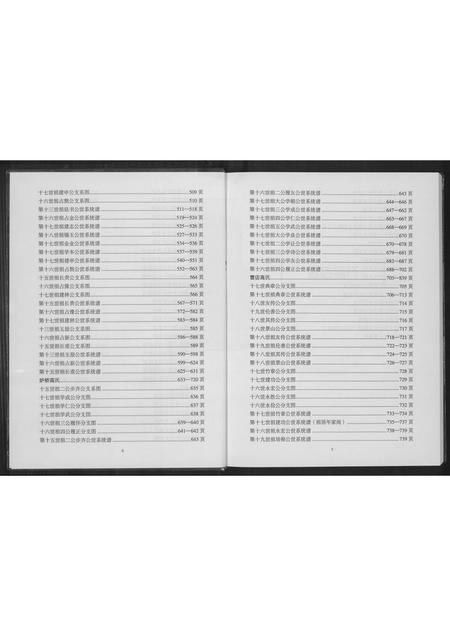 十七世祖建申公支系图 509 页
十六世祖占熬公支系图 510 页
第十三世祖廷书公世系统谱 511—518 页
第十六世祖占金公世系统谱 519—524 页
第十七世祖建志公世系统谱 525—526 页
第十八世祖锡玉公世系统谱 527—533 页
第十七世祖金金公世系统谱 534—536 页
第十七世祖学本公世系统谱 537—539 页
第十七世祖建申公世系统谱 540—551 页
第十六世祖占熬公世系统谱 552—563 页
十五世祖长贵公支系图 564 页
十六世祖占豫公支系图 565 页
十七世祖建林公支系图 566 页
第十五世祖长贵公世系统谱 567—571 页
第十六世祖占豫公世系统谱 572—582 页
第十七世祖建林公世系统谱 583—584 页
十三世祖玉振公支系图 585 页
十六世祖占新公支系图 586—588 页
十五世祖长谱公支系图 589 页
第十三世祖玉振公世系统谱 590—598 页
第十六世祖占新公世系统谱 599—624 页
第十五世祖长谱公世系统谱 625—631 页
妒桥高氏 633—720 页
十五世祖二公步齐公支系图 635 页
十七世祖学成公分支图 636 页
十七世祖学仁公分支图 637 页
十七世祖学武公分支图 638 页
十六世祖三公履怀分支图 639—640 页
十六世祖四公履正分支图 641—642 页
第十五世祖二公步齐公世系统谱 643 页
6
第十六世祖二公履友公世系统谱 643 页
第十七世祖大公学朝公世系统谱 644—646 页
第十七世祖三公学成公世系统谱 647—662 页
第十七世祖四公学仁公世系统谱 663—667 页
第十七世祖五公学武公世系统谱 668—669 页
第十七世祖大公学会公世系统谱 670 页
第十七世祖二公学让公世系统谱 670—678 页
第十七世祖三公学诗公世系统谱 679—681 页
第十七世祖四公学友公世系统谱 682—687 页
第十六世祖四公履正公世系统谱 688—702 页
曹店高氏 703—839 页
十七世祖典章公分支图 705 页
第十七世祖典章公世系统谱 706—713 页
十八世友持公分支图 714 页
十九世伦善公分支图 715 页
十八世其持公分支图 716 页
十八世景山公分支图 717 页
第十八世祖友持公世系统谱 718—721 页
第十九世祖伦善公世系统谱 722—723 页
第十八世祖其持公世系统谱 724—725 页
第十八世祖景山公世系统谱 726—727 页
十七世竹章公分支图 728 页
十七世建功公分支图 729 页
十六世永宏公分支图 730 页
十六世永胜公分支图 731 页
十六世永俭公分支图 732 页
第十七世祖竹章公世系统谱 733—734 页
第十七世祖建功公世系统谱（祖居年家岗） 735—737 页
第十六世祖永宏公世系统谱 738—739 页
第十九世祖培棉公世系统谱 739 页
7